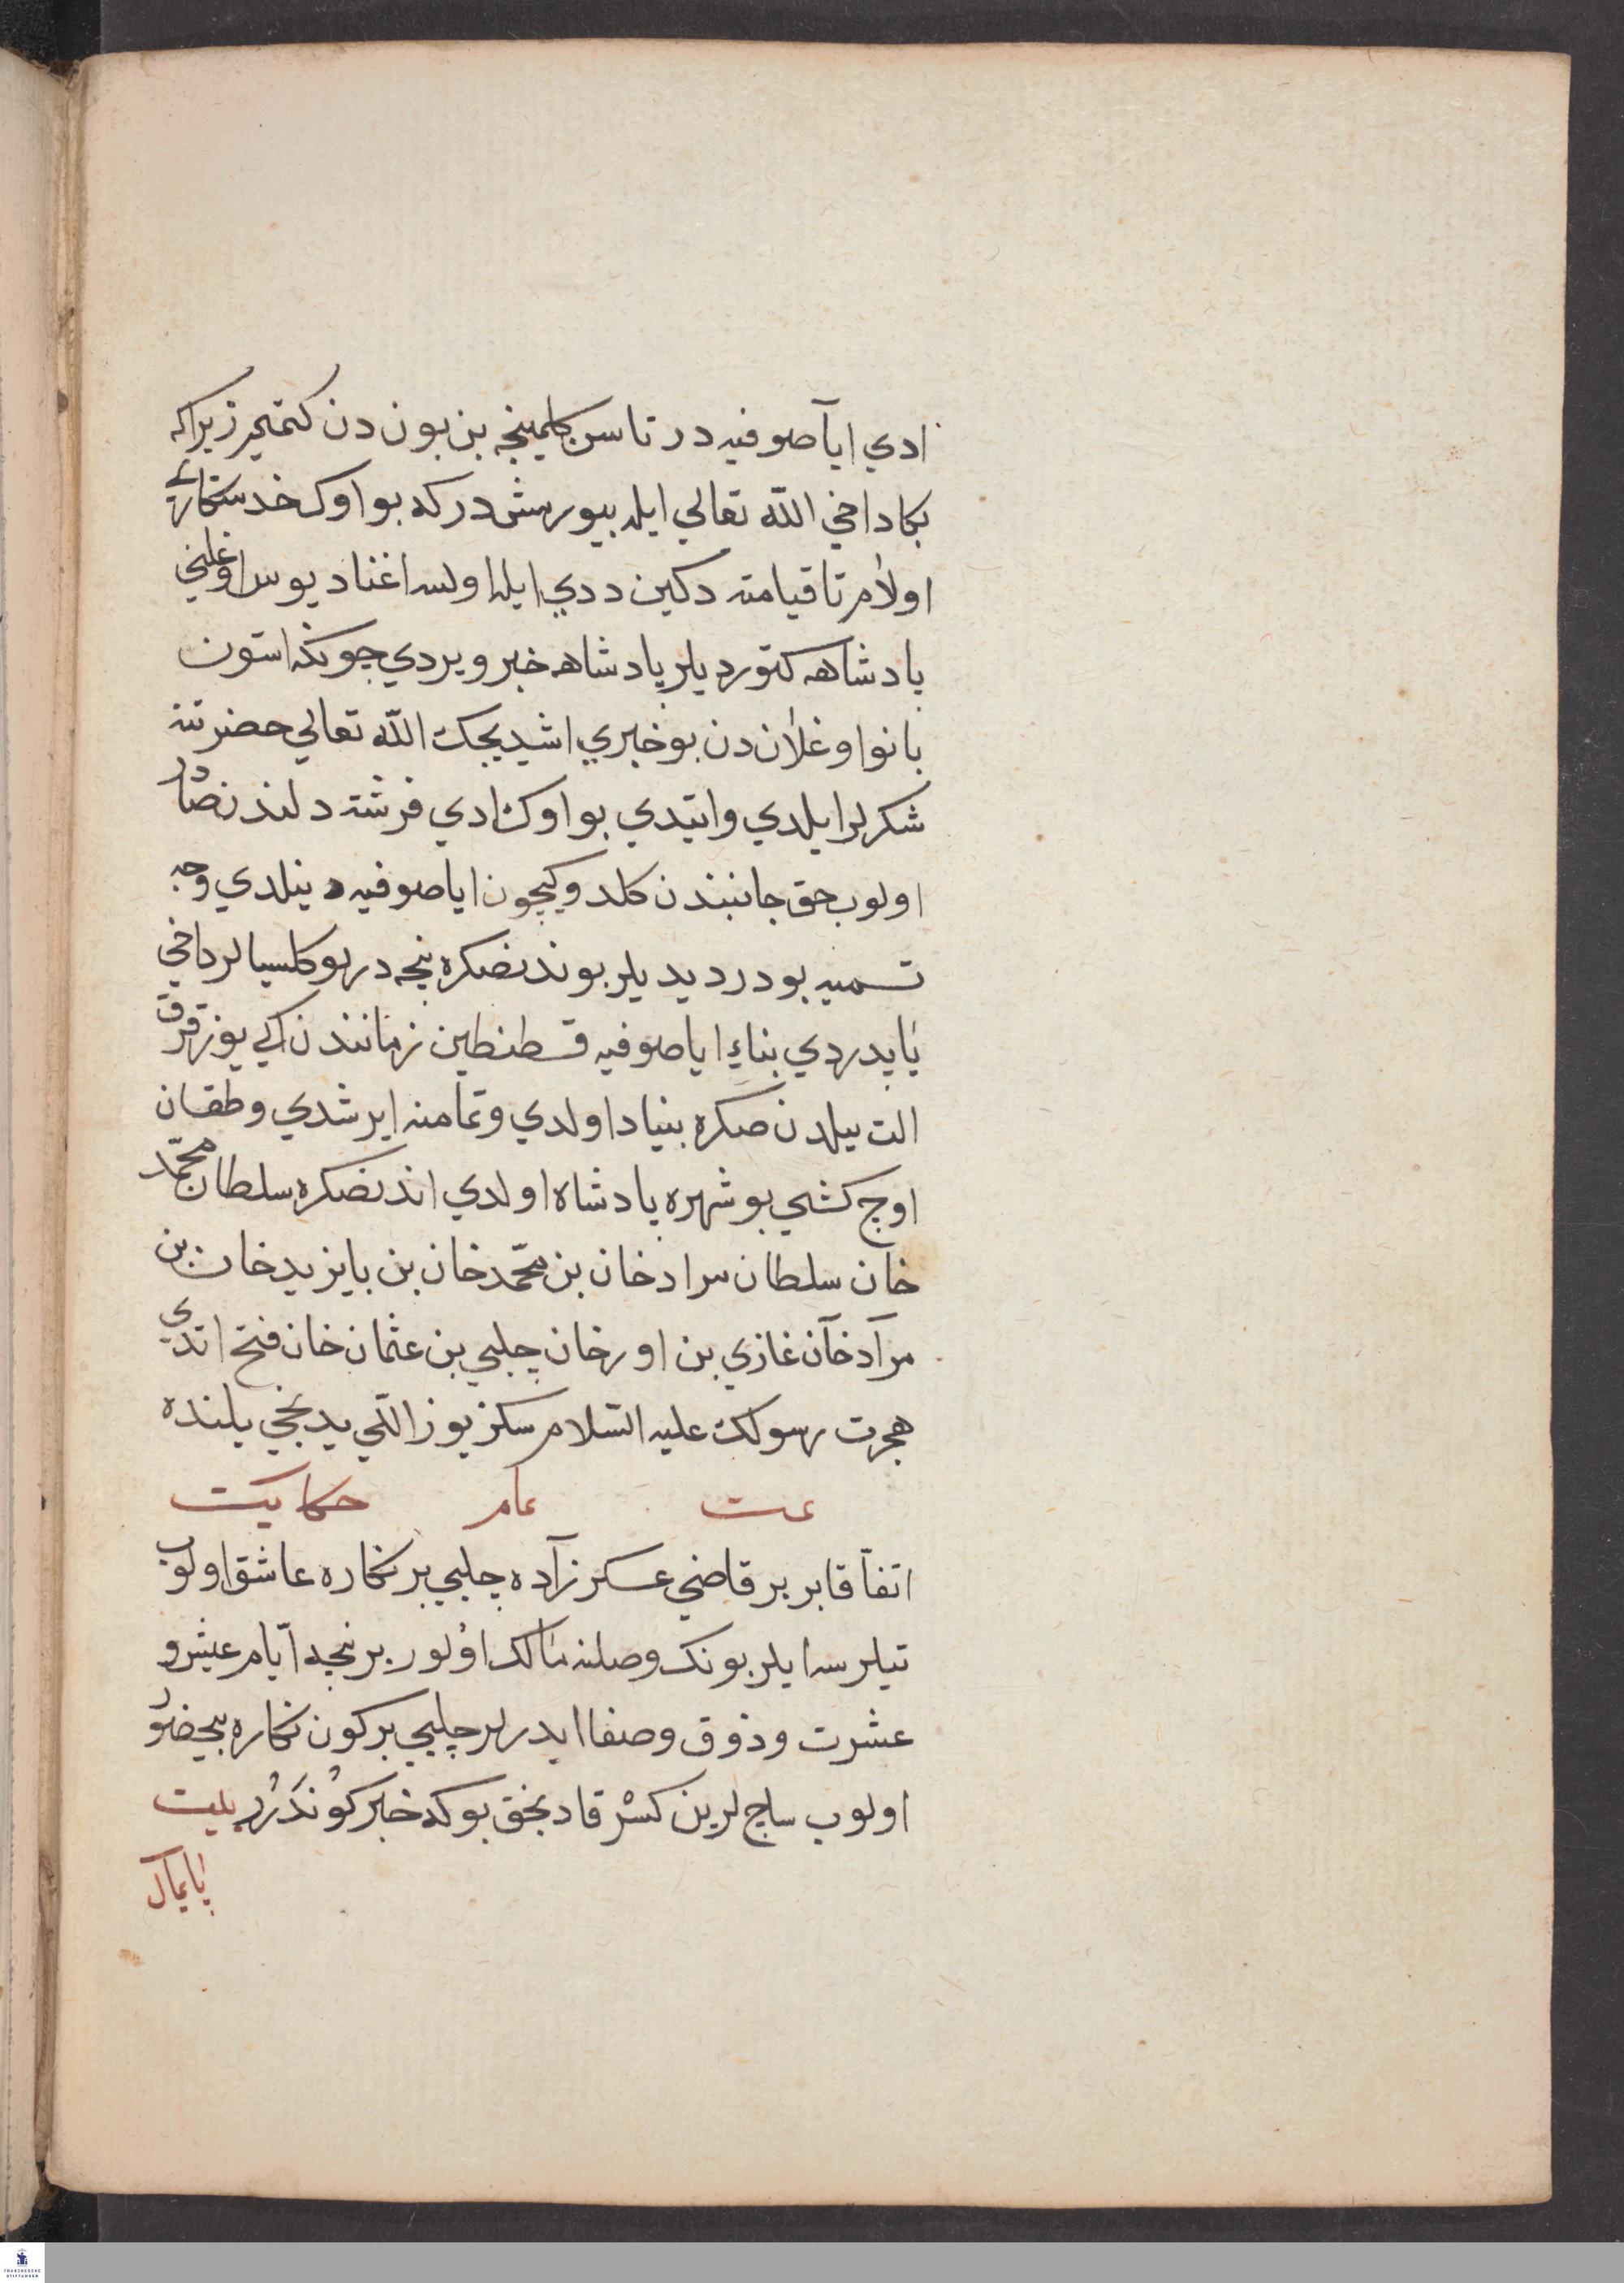 ادي اياصوفيه در تا سن كلمينجه بن بوندن كتمزم زيراكه
بكا داخي الله تعالي ايله بيورمش در كه بو اوك خدمتكاري
اولام تا قيامته دكين ددي ايله اولسه اغناديوس اوغلني
پادشاهه كتورديلر پادشاه خبر ويردي چونكه استون
بانو اوغلان دن بو خبري اشيديجك الله تعالي حضرتنه
شكرلر ايلدي وايتدي بو اوك ادي فرشته دلندن صادر
اولوب حق جانبندن كلدوكيچون اياصوفيه دينلدي وجه
تسميه بودر ديديلر بوندنصكره نيجه در لو كليسالر داخي
ياپدردي بناء اياصوفيه قسطنطين زماننندن ايكي يوز قرق
الت ييلدن صكره بنياد اولدي وتمامنه ايرشدي وطقسان
اوچ كشي بو شهره پادشاه اولدي اندنصكره سلطان محمّد
خان سلطان مراد خان بن محمّد خان بن بايزيد خان بن
مراد خان غازي بن اورخان چلبي بن عثمان خان فتح اتدي
هجرت رسولك عليه السّلام سكز يوز اللي يدنجي يلنده
عت عام حكايت
اتفاقا بر بر قاضي عسكر زاده چلبي بر نكاره عاشق اولوب
نيلرسه ايلر بونك وصلنه مالك اولور بر نيجه ايّام عيش و
عشرت وذوق وصفا ايدرلر چلبي بر كون نكاره بيحضور
اولوب ساچلرين كسر قادنجق بوكه خبر كوندَرُر بيت
پايمال